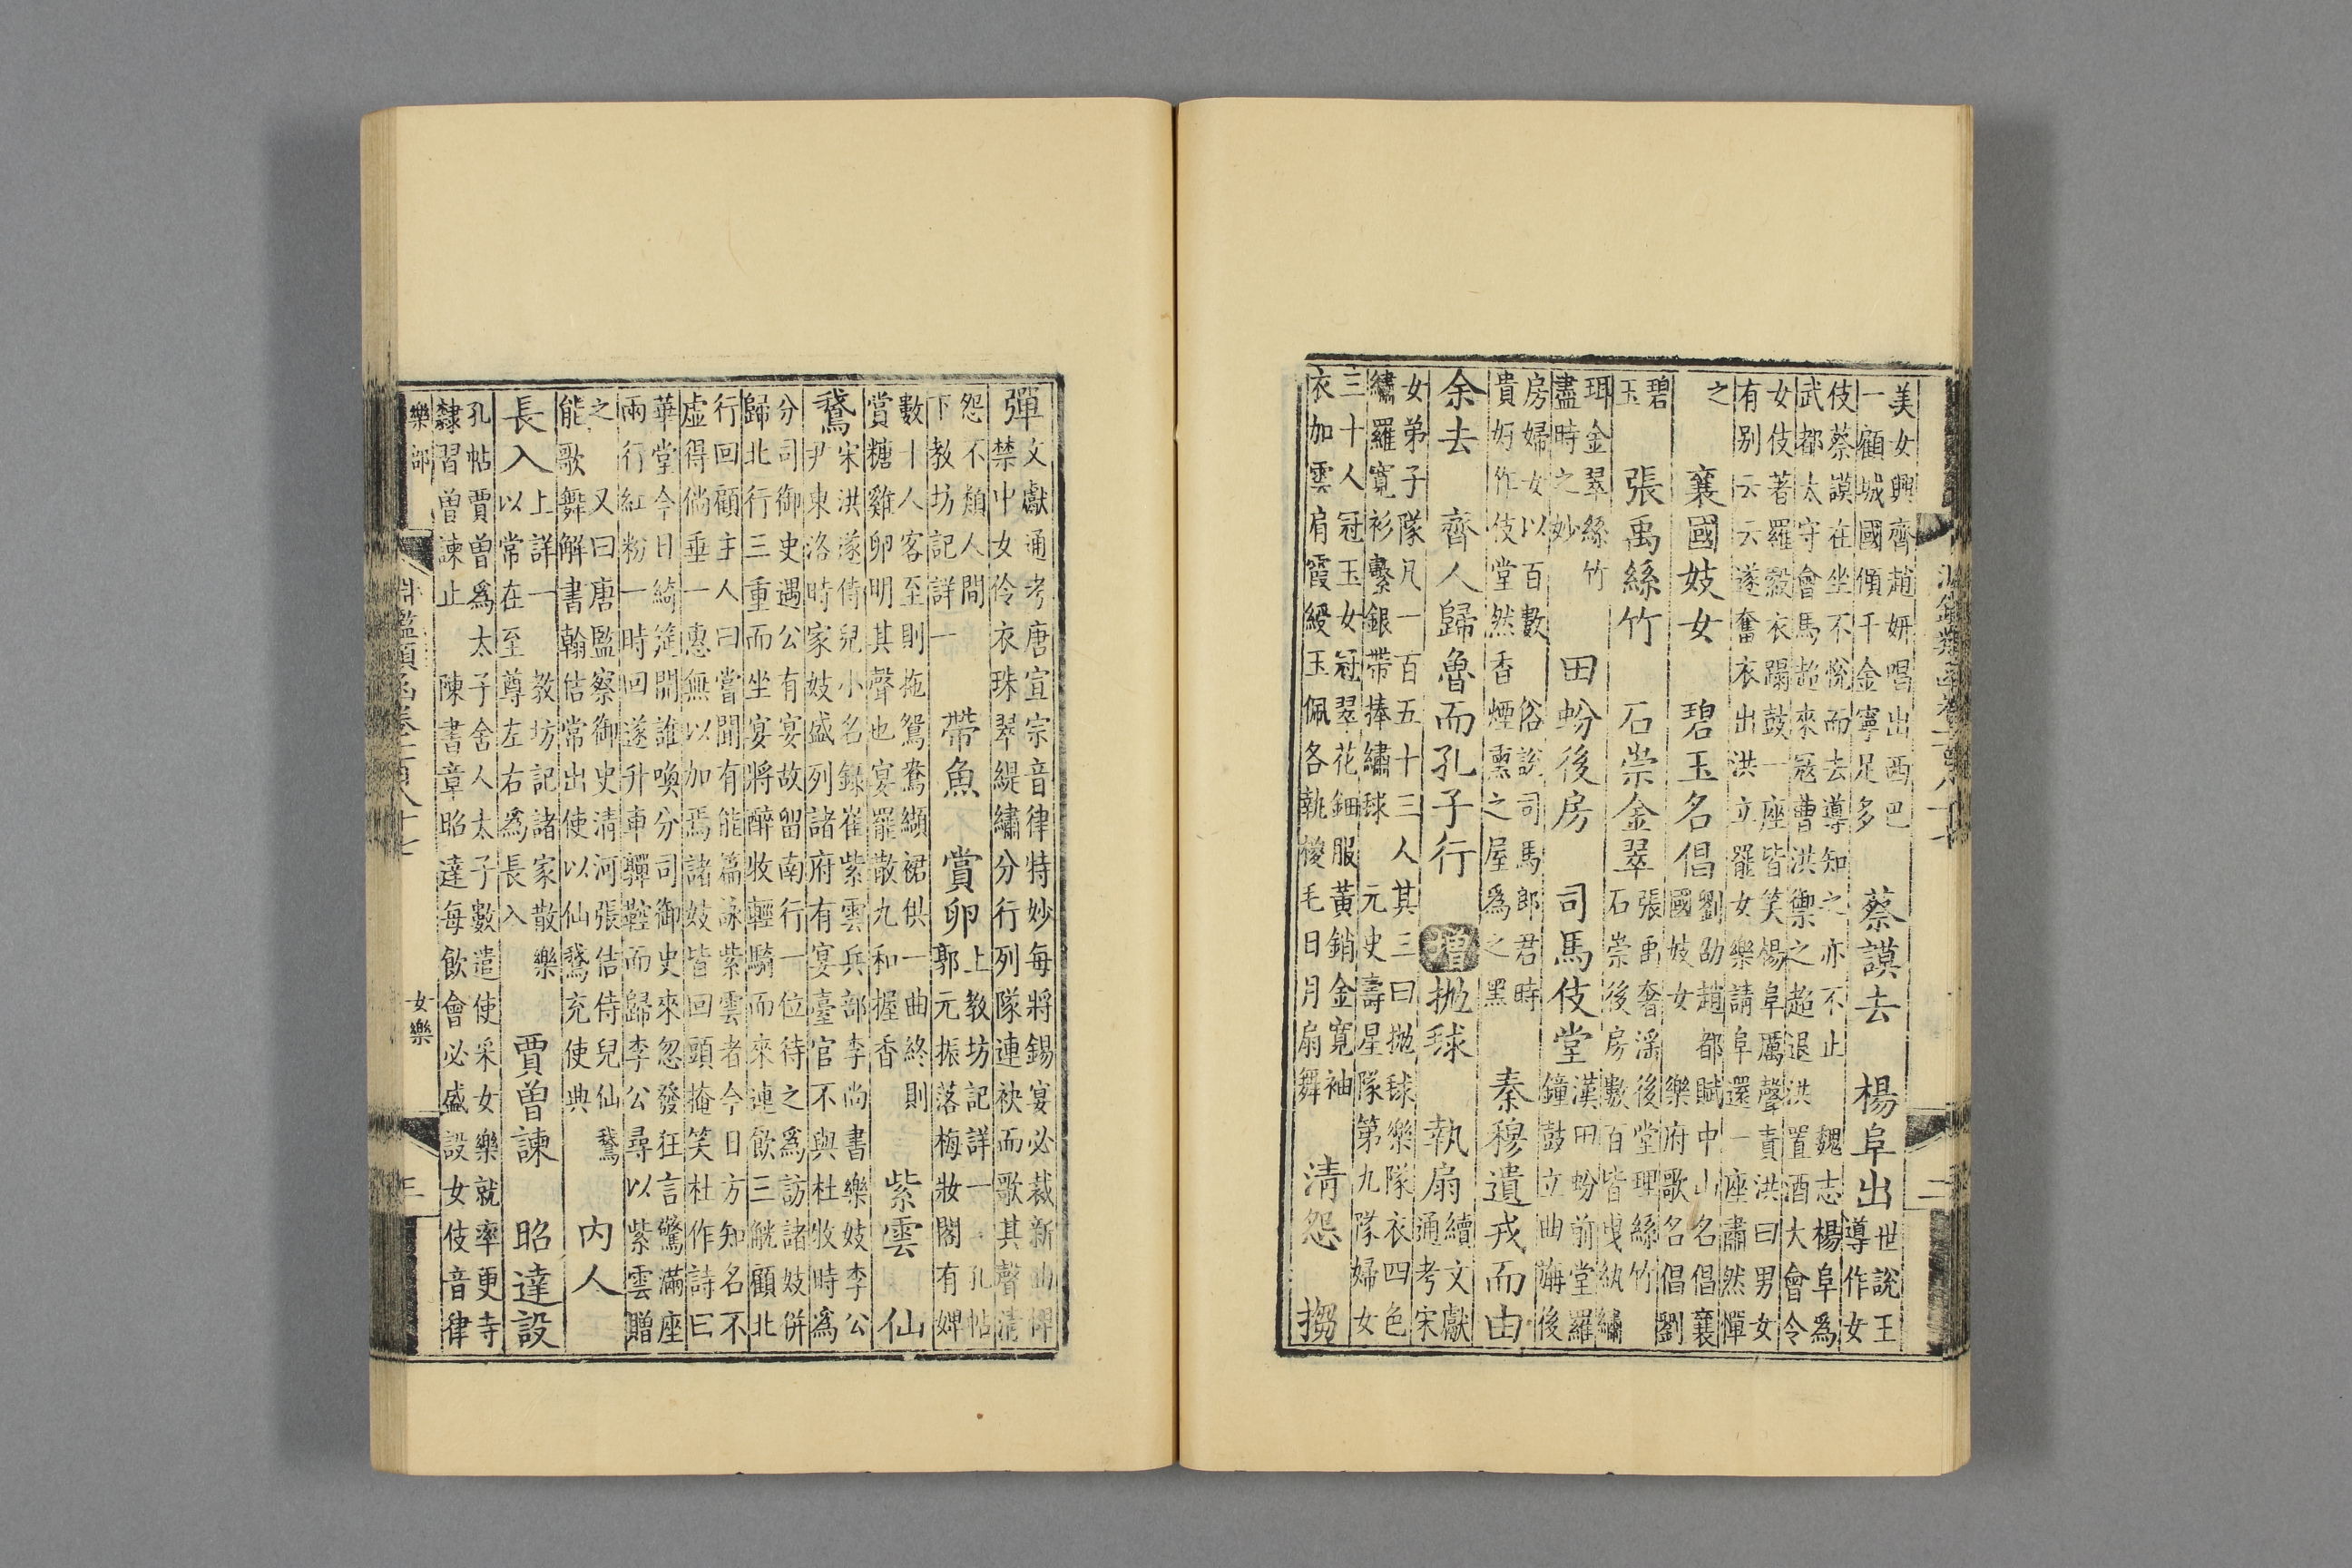 美女興齊趙妍唱出西巴
一顧城國傾千金寧足多
蔡謨去　楊阜出
世說王
導作女
伎蔡謨在坐不悅而去導知之亦不止　魏志楊阜爲
武都太守會馬超來寇曹洪禦之超退洪置酒大會令
女伎著羅縠衣蹋鼓一座皆笑楊阜厲聲責洪曰男女
有別云云遂奮衣出洪立罷女樂請阜還一座肅然憚
之
襄國妓女　碧玉名倡
劉劭趙都賦中山名倡襄
國妓女　樂府歌名倡劉
碧
玉
張禹絲竹　石崇金翠
張禹奢滛後堂理絲竹
石崇後房數百皆曳紈繡
珥金翠絲竹
盡時之妙
田蚡後房　司馬伎堂
漢田蚡前堂羅
鐘鼓立曲旃後
房婦女以百數　俗說司馬郎君時
貴好作伎堂然香煙熏之屋爲之黑
秦穆遺戎而由
余去　齊人歸魯而孔子行　增　拋毬　執扇
續文獻
通考宋
女弟子隊凡一百五十三人其三曰拋毬樂隊衣四色
繡羅寬衫繫銀帶捧繡毬　元史壽星隊第九隊婦女
三十人冠玉女冠翠花鈿服黃銷金寬袖
衣加雲肩霞綬玉佩各執毛日月扇舞
清怨　搊
彈
文獻通考唐宣宗音律特妙每將錫宴必裁新曲俾
禁中女伶衣珠翠緹繡分行列隊連袂而歌其聲清
怨不類人間
下教坊記詳一
帶魚　賞卵
上教坊記詳一　孔帖
郭元振落梅妝閣有婢
數十人客至則拖鴛鴦纈裙供一曲終則
賞糖雞卵明其聲也宴罷散九和握香
紫雲　仙
鵞
宋洪遂侍兒小名錄崔紫雲兵部李尚書樂妓李公
尹東洛時家妓盛列諸府有宴臺官不與杜牧時爲
分司御史遇公有宴故留南行一位待之爲訪諸妓併
歸北行三重而坐宴將醉牧輕騎而來連飲三觥顧北
行回顧主人曰嘗聞有能篇詠紫雲者今日方知名不
虛得倘垂一惠無以加焉諸妓皆回頭掩笑杜作詩曰
華堂今日綺筵開誰喚分司御史來忽發狂言驚滿座
兩行紅粉一時回遂升車嚲鞚而歸李公尋以紫雲贈
之　又曰唐監察御史清河張佶侍兒仙鵞
能歌舞解書翰佶常出使以仙鵞充使典
內人
長入
上詳一　教坊記諸家散樂
以常在至尊左右爲長入
賈曾諫　昭達設
孔帖賈曾爲太子舍人太子數遣使采女樂就率更寺
隸習曾諫止　陳書章昭達每飲會必盛設女伎音律
樂部
女樂
三